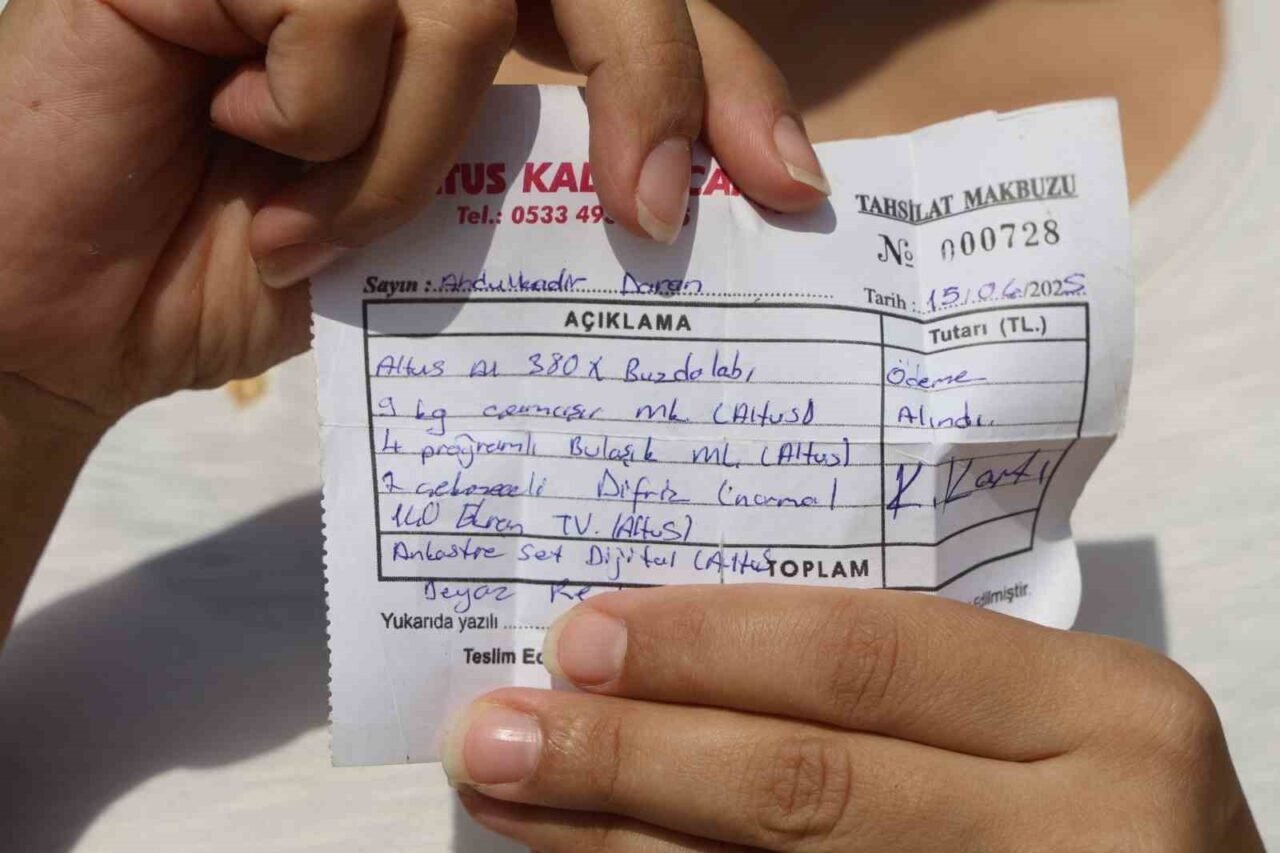 TUS KAD CA
Tel.: 0533 49
TAHSİLAT MAKBUZU
№ 000728
Sayın : Abdulkadir Daran
Tarih : 15/06/2025
AÇIKLAMA Tutarı (TL.)
Altus AL 380 X Buzdolabı Ödeme
9 kg çamaşır mk. (Altus) Alındı.
4 proğramlı Bulaşık mk. (Altus)
7 çekmeceli Difriz (normal K. Kartı
140 Ekran TV. (Altus)
Ankastre set Dijital (Altus TOPLAM
Beyaz Re
Yukarıda yazılı edilmiştir.
Teslim Ed